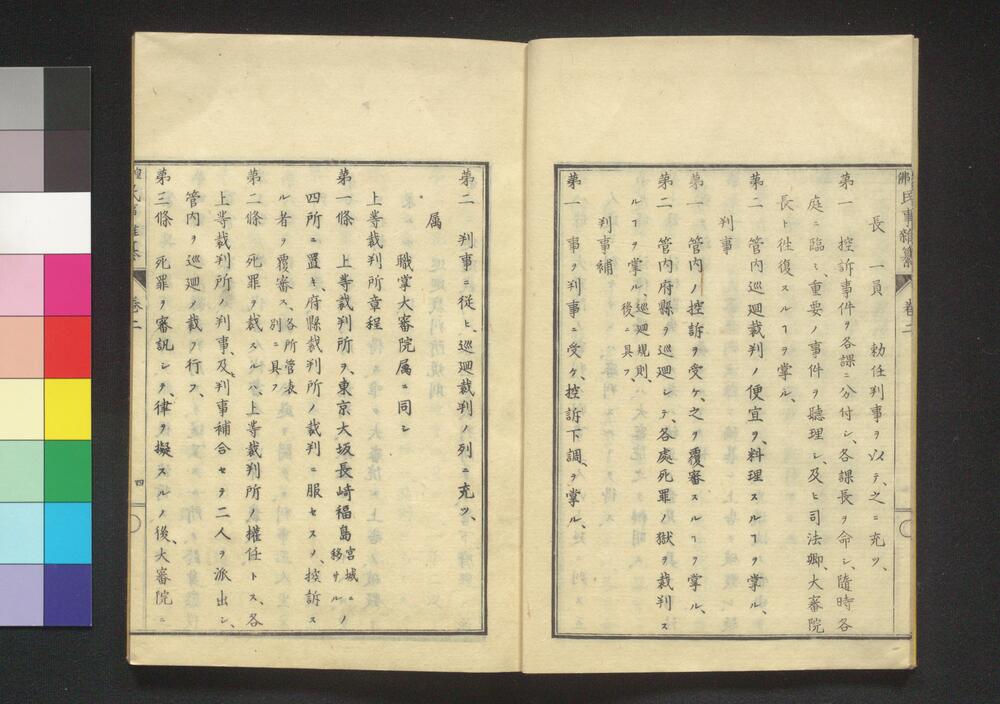 佛民事雜纂 卷二
長 一員 勅任判事ヲ以テ、之ニ充ツ、
第一 控訴事件ヲ各課ニ分付シ、各課長ヲ命シ、隨時各
庭ニ臨ミ、重要ノ事件ヲ聽理シ、及ヒ司法卿、大審院
長ト徃復スルヿヲ掌ル、
第二 管内巡廻裁判ノ便宜ヲ、料理スルヿヲ掌ル、
判事
第一 管内ノ控訴ヲ受ケ、之ヲ覆審スルヿヲ掌ル、
第二 管内府縣ヲ巡廻シテ、各處死罪ノ獄ヲ裁判ス
ルヿヲ掌ル、巡廻規則、後ニ具フ
判事補
第一 事ヲ判事ニ受ケ、控訴下調ヲ掌ル、
第二 判事ニ從ヒ、巡廻裁判ノ列ニ充ツ、
属
職掌大審院属ニ同シ
上等裁判所章程
第一條 上等裁判所ヲ、東京大坂長崎福島宮城ニ移サルノ
四所ニ置キ、府縣裁判所ノ裁判ニ服セスノ、控訴ス
ル者ヲ覆審ス、各所管表別ニ具フ
第二條 死罪ヲ裁スルハ、上等裁判所ノ權任トス、各
上等裁判所ノ判事、及判事補合セテ二人ヲ派出シ、
管内ヲ巡廻ノ裁ヲ行フ、
第三條 死罪ヲ審訊シテ、律ヲ擬スルノ後、大審院ニ
卷二
四